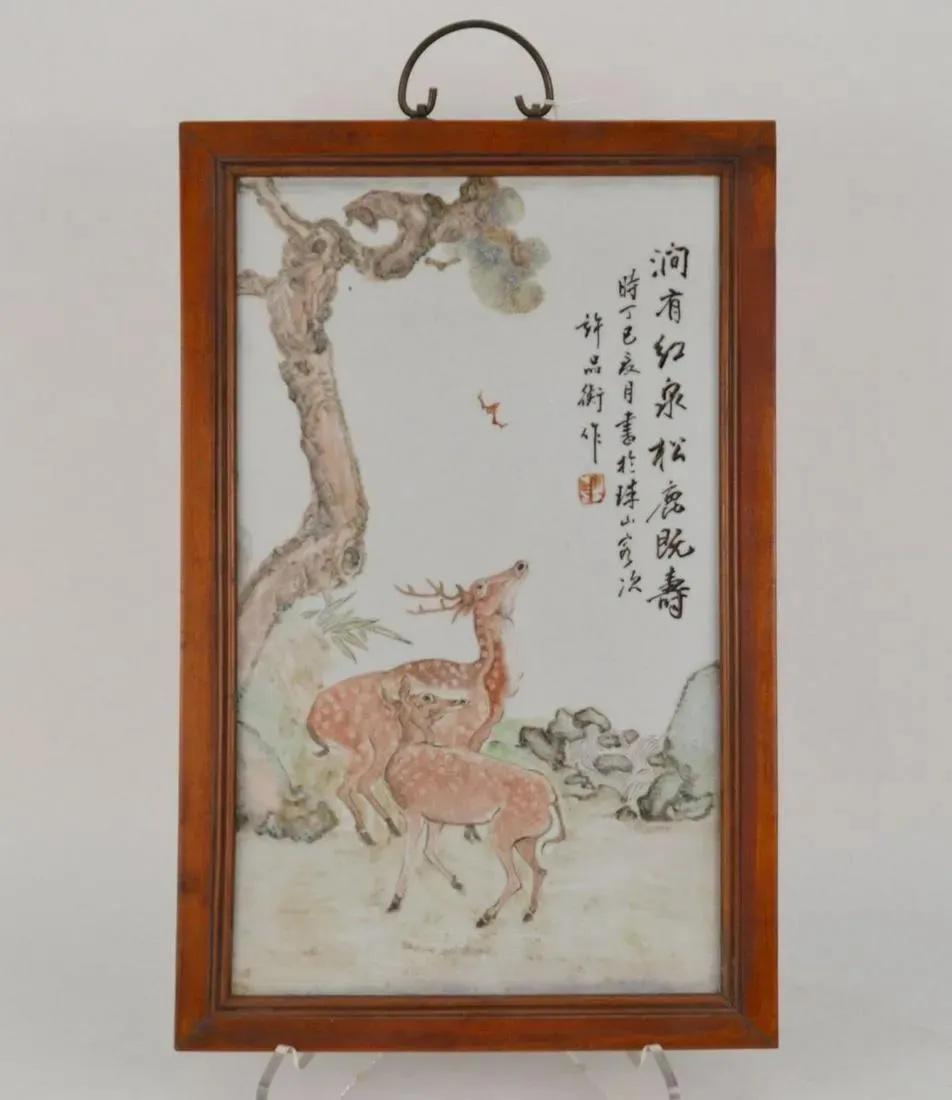 澗有紅泉松鹿既壽
時丁巳亥月書於珠山客次
許品衡作